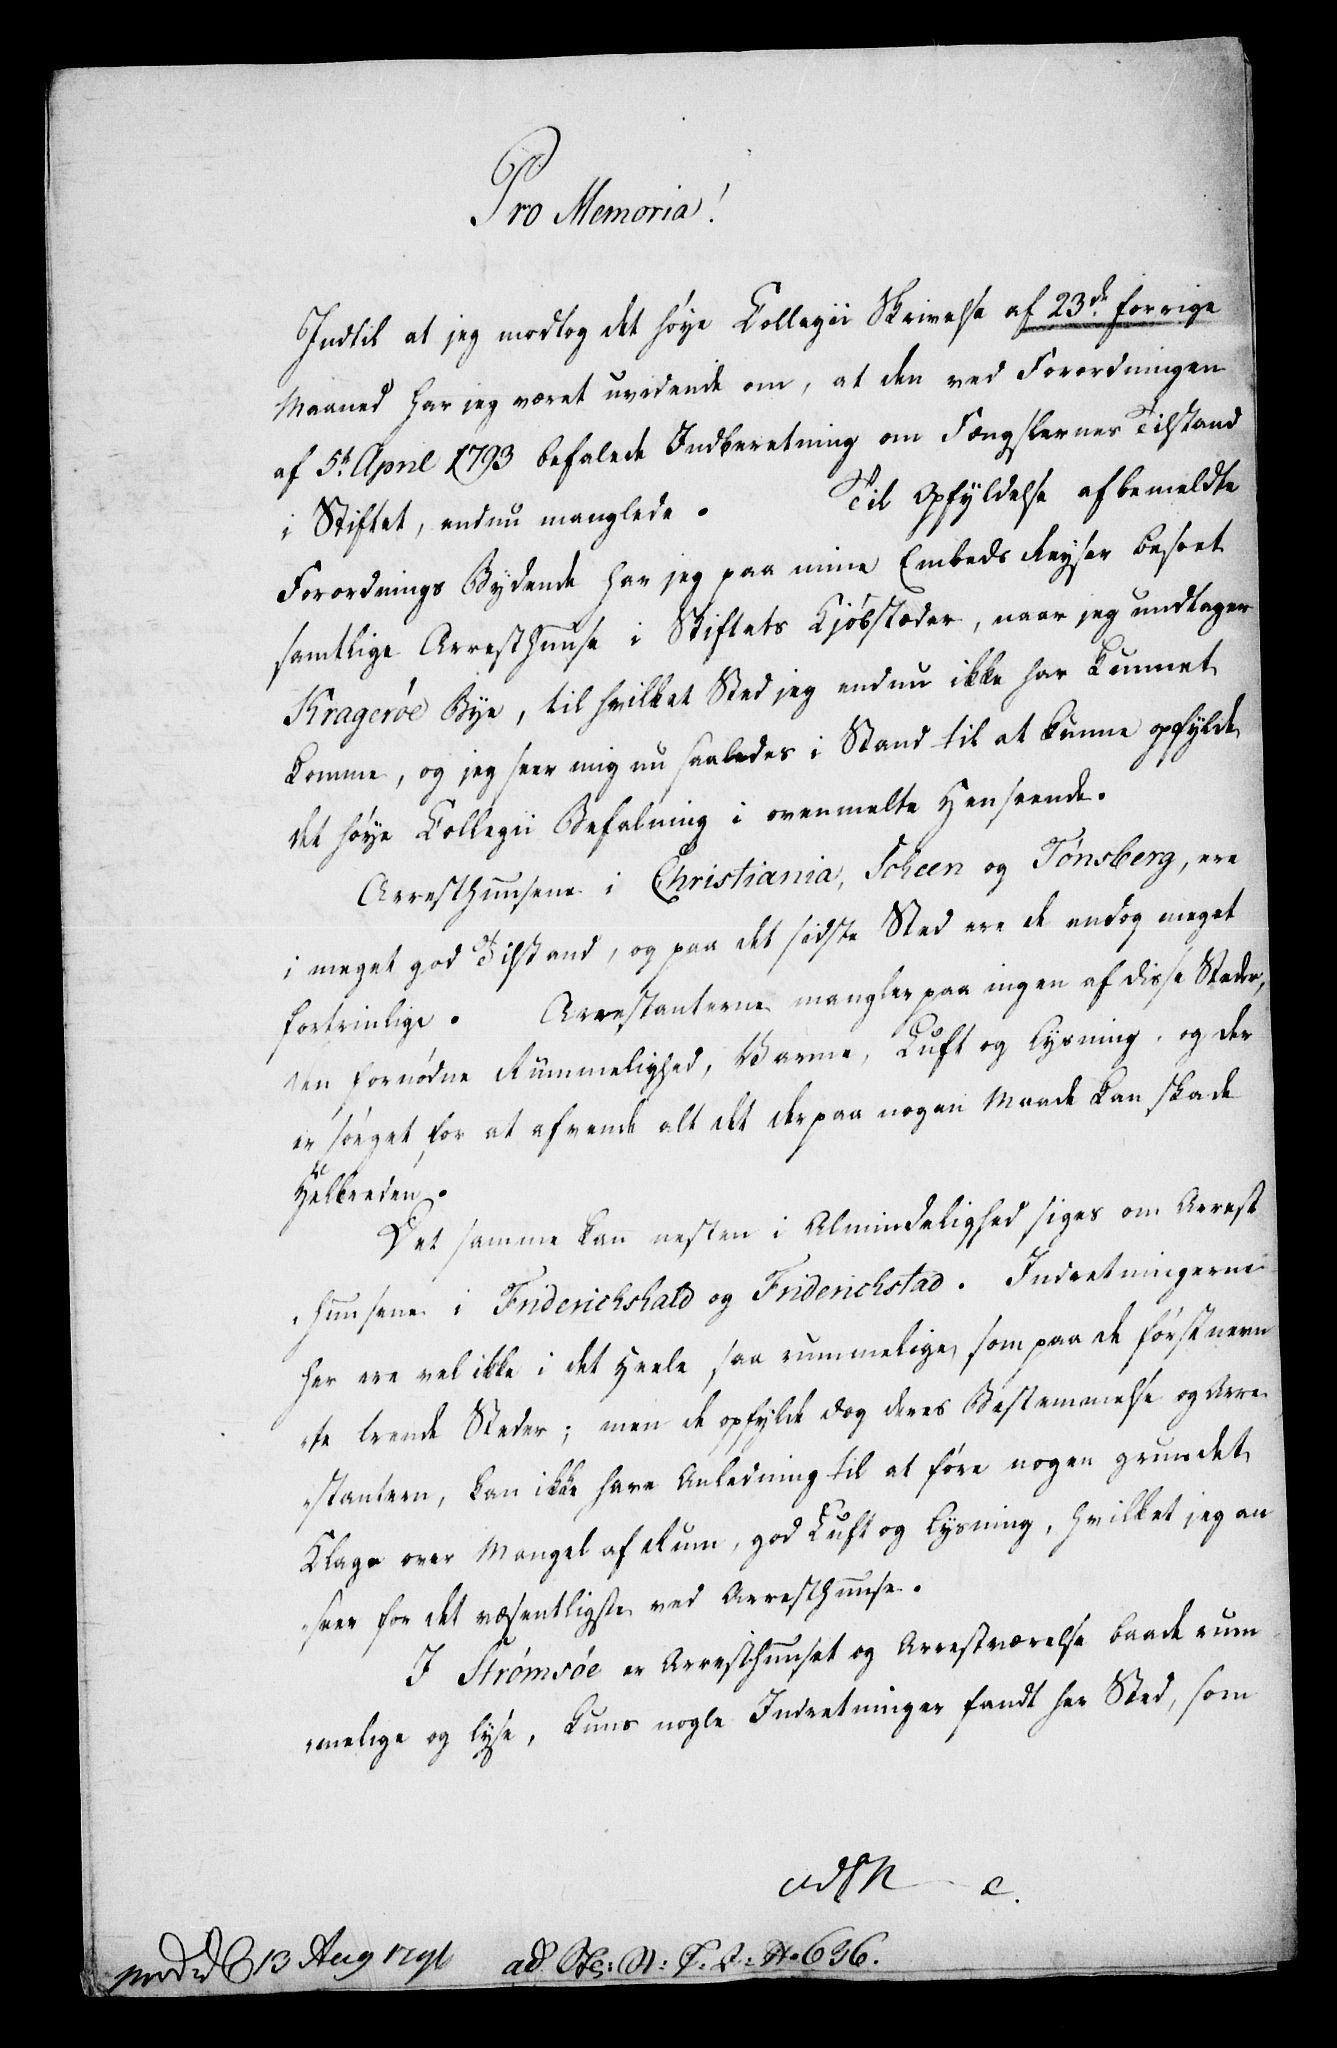 Pro Memoria!
Indtil at jeg modtog det høye Collegii Skrivelse af 23de forrige
Maaned har jeg været uvidende om, at den ved Forordningen
af 5t April 1793 befalede Indberetning om Fængslernes Tilstand
i Stiftet, endnu manglede. Til Opfyldelse af bemeldte
Forordnings Bydende har jeg paa mine Embeds Reyser beseet
samtlige Arresthuuse i Stiftets Kjøbstæder, naar jeg undtager
Kragerøe Bye, til hvilket Sted jeg endnu ikke har kunnet
komme, og jeg seer mig nu saaledes i Stand til at kunne opfylde
det høye Collegii Befalning i ovenmelte Henseende.
Arresthuusene i Christiania, Scheen og Tønsberg, ere
i meget god Tilstand, og paa det sidste Sted ere de endog meget
fortrinlige. Arrestanterne mangler paa ingen af disse Steder,
den fornødne Rummelighed, Varme, Luft og Lysning, og der
er sørget for at afvende alt det der paa nogen Maade kan skade
Helbreden.
Det samme kan nesten i Almindelighed siges om Arrest
huusene i Friderichshald og Friderichstad. Indretningerne
her ere vel ikke i det Heele saa rummelige, som paa de førstnevn
te trende Steder; men de opfylde dog deres Bestemmelse og Arre
stantern, kan ikke have Anledning til at føre nogen grundet
Klage over Mangel af Rum, god Luft og Lysning, hvilket jeg an
seer for det væsentligste ved Arresthuuse.
I Strømsøe er Arresthuuset og Arrestværelse baade rum
melige og lyse, kuns nogle Indretninger fandt her Sted, som
13 Aug 1796 ad No 636.